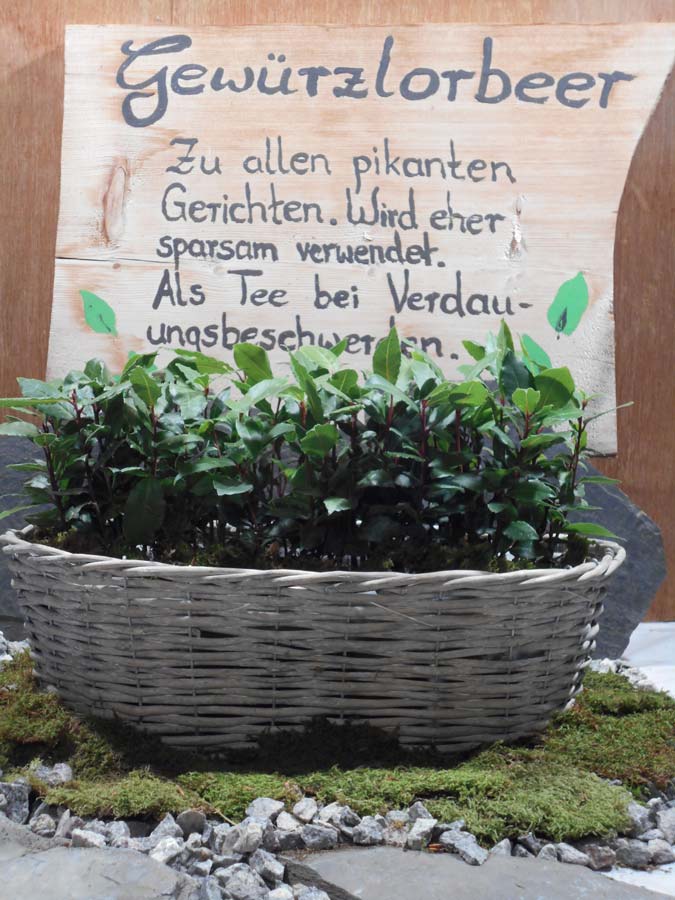 Gewürzlorbeer
Zu allen pikanten
Gerichten. Wird eher
sparsam verwendet.
Als Tee bei Verdau-
ungsbeschwerden.